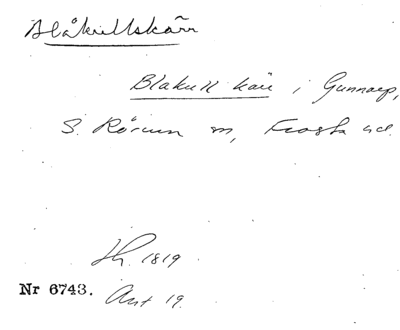 Blåkullskärr
Blakull kärr i Gunnarp,
S. Rörum sn, Frosta hd.
Lh. 1819
Nr 6743. Ant 19.